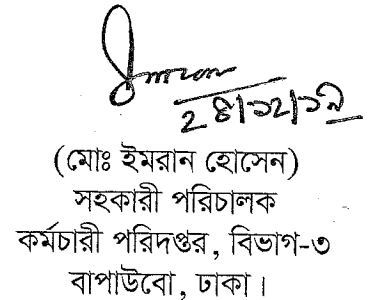 ২৪/১২/১৯
(মোঃ ইমরান হোসেন)
সহকারী পরিচালক
কর্মচারী পরিদপ্তর, বিভাগ-৩
বাপাউবো, ঢাকা।